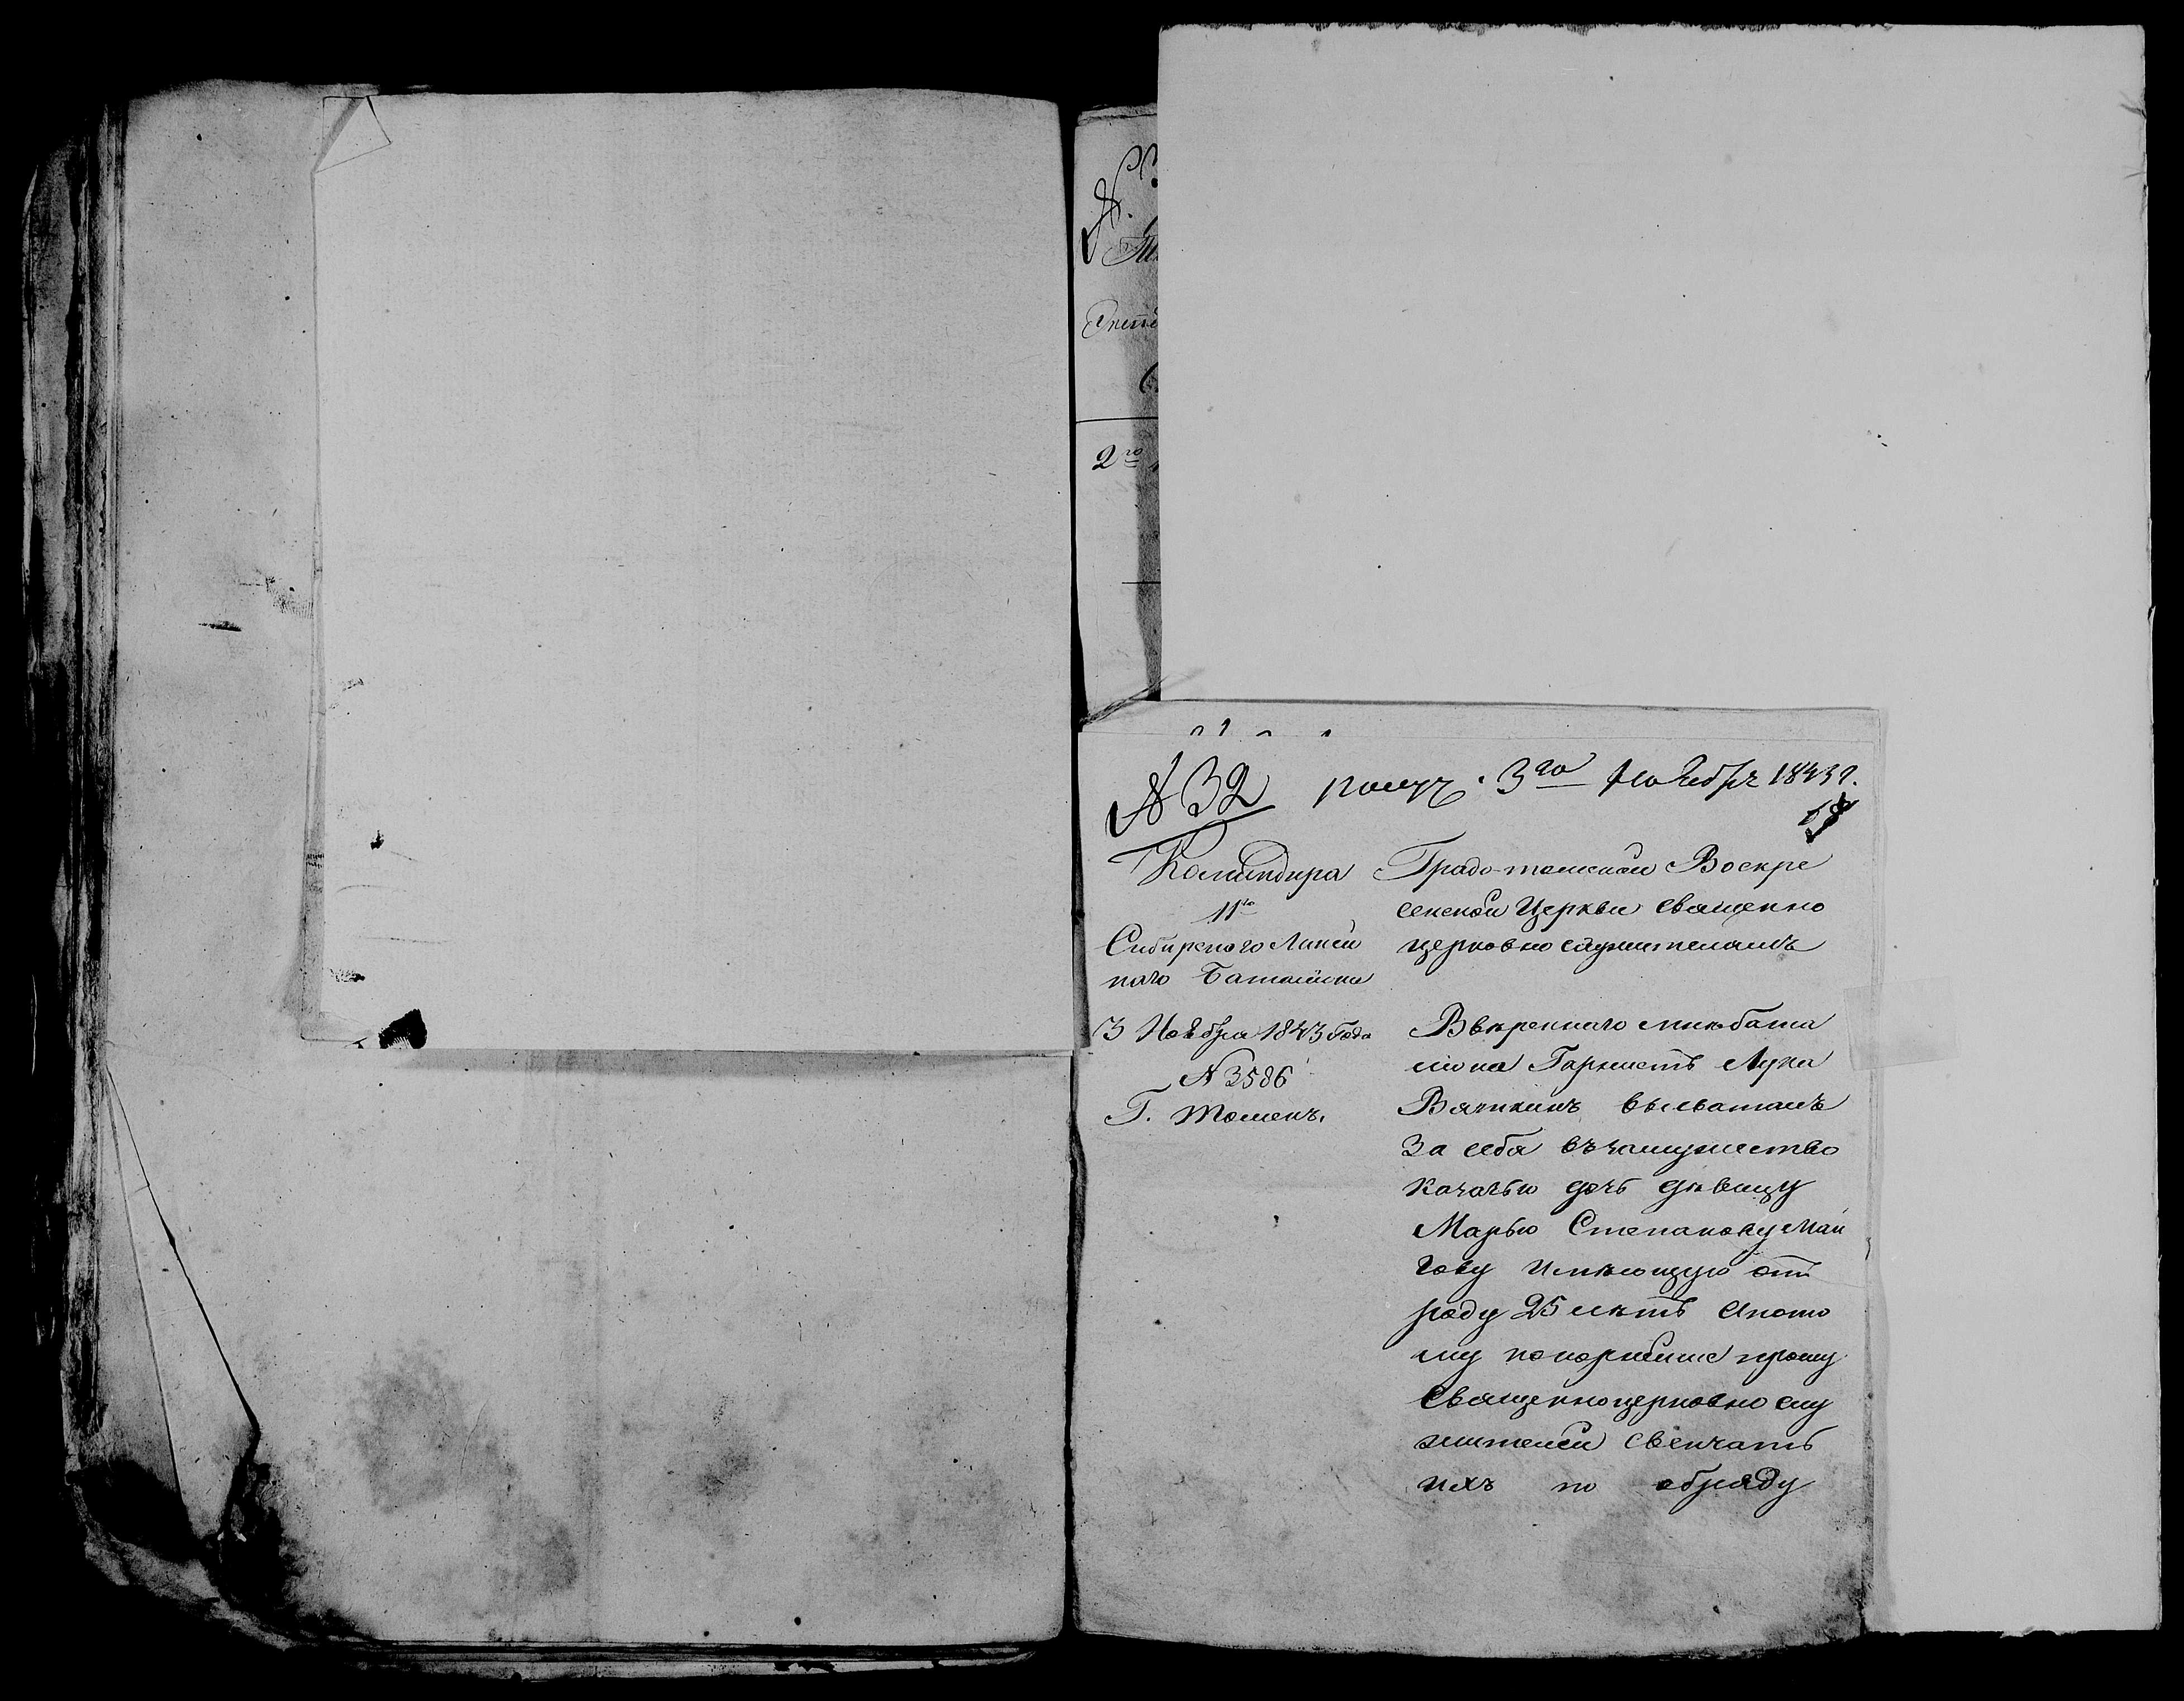 № 32 получ. 3го Ноября 1843 г.
68
Командира
11го
Сибирского Линей
наго Баталиона
3 Ноября 1843 Года
№ 3586
Г. Томскъ.
Градо-томской Воскре
сенской Церкви Священно
церковно служителямъ
Ввѣреннаго мнѣ бата
лiона Горнистъ Лука
Вяткинъ высваталъ
За себя въ замужество
Казачью дочь дѣвицу
Марью Степанову
гову Имѣющую отъ
роду 25 лѣтъ Апото
му покорнѣише прошу
Священноцерковно слу
жителей свенчать
ихъ по обряду